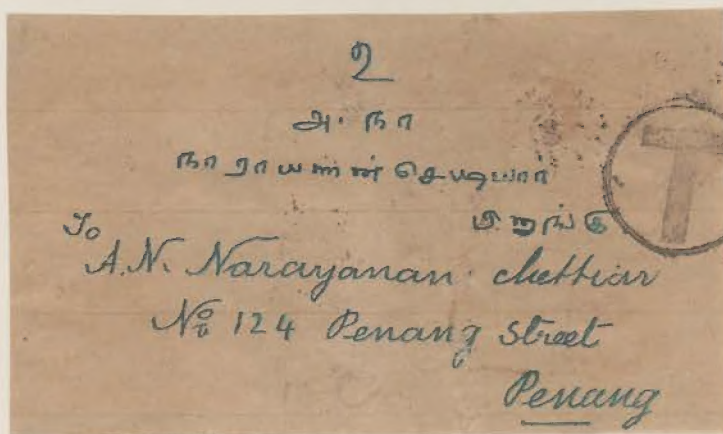 உ
அ. நா
நாராயணன் செட்டியார்
பினாங்கு
To
A.N. Narayanan chettiar
No 124 Penang Street
Penang
T